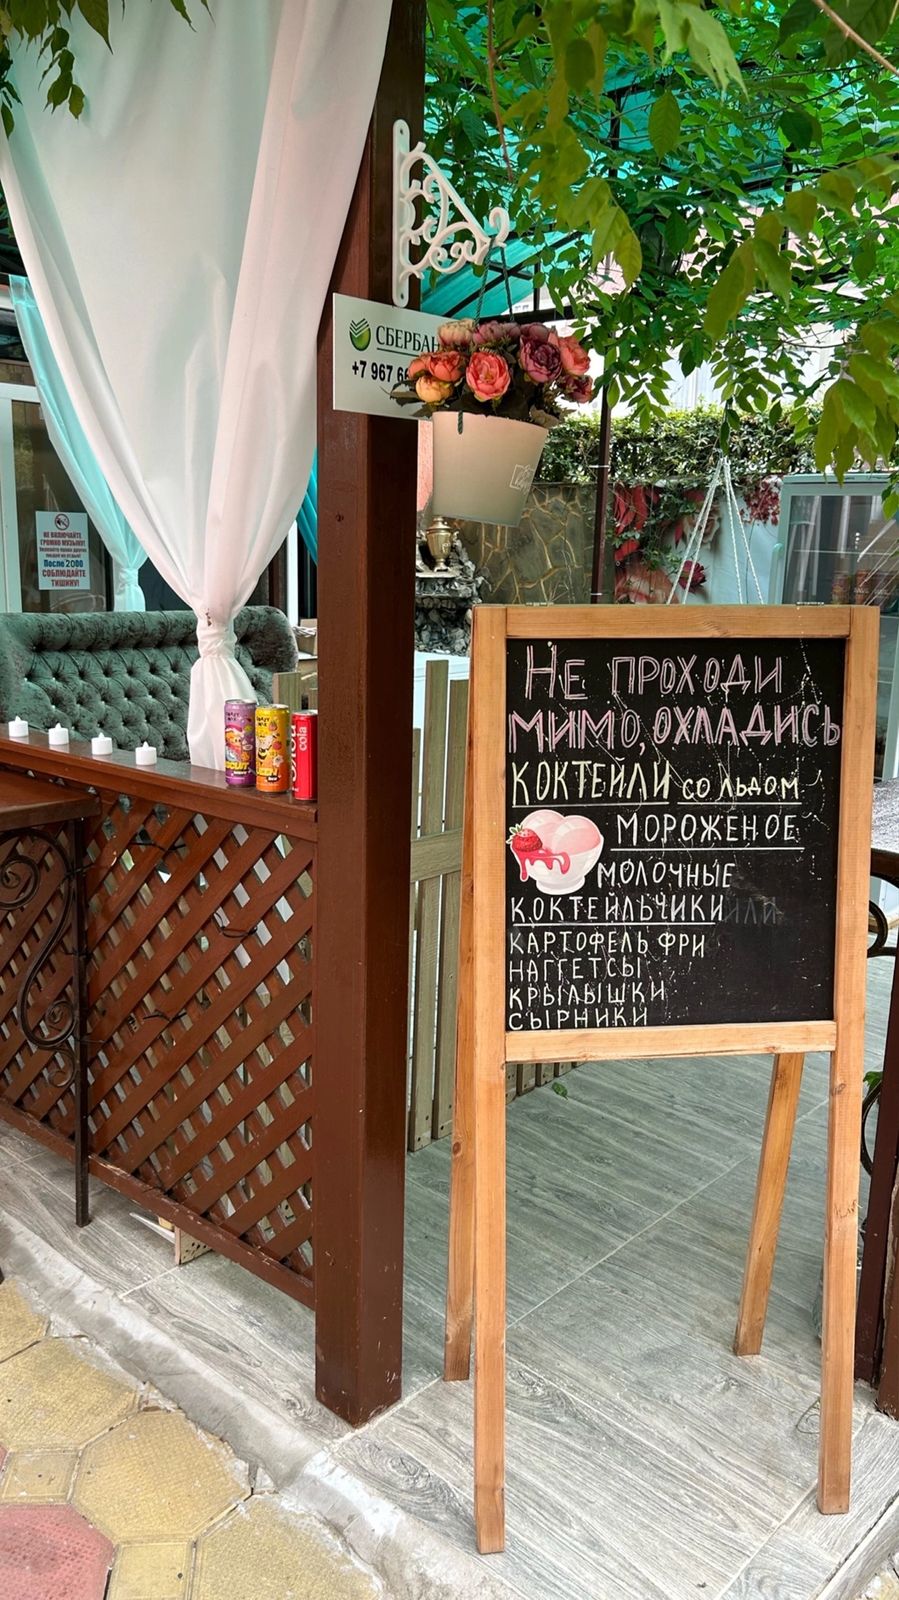 СБЕРБАН
+7 967 6
НЕ ВКЛЮЧАЙТЕ
ГРОМКО МУЗЫКУ!
После 20:00
СОБЛЮДАЙТЕ
ТИШИНУ!
cola
НЕ ПРОХОДИ
МИМО, ОХЛАДИСЬ
КОКТЕЙЛИ СО ЛЬДОМ
МОРОЖЕНОЕ
МОЛОЧНЫЕ
КОКТЕЙЛЬЧИКИ
КАРТОФЕЛЬ ФРИ
НАГГЕТСЫ
КРЫЛЫШКИ
СЫРНИКИ